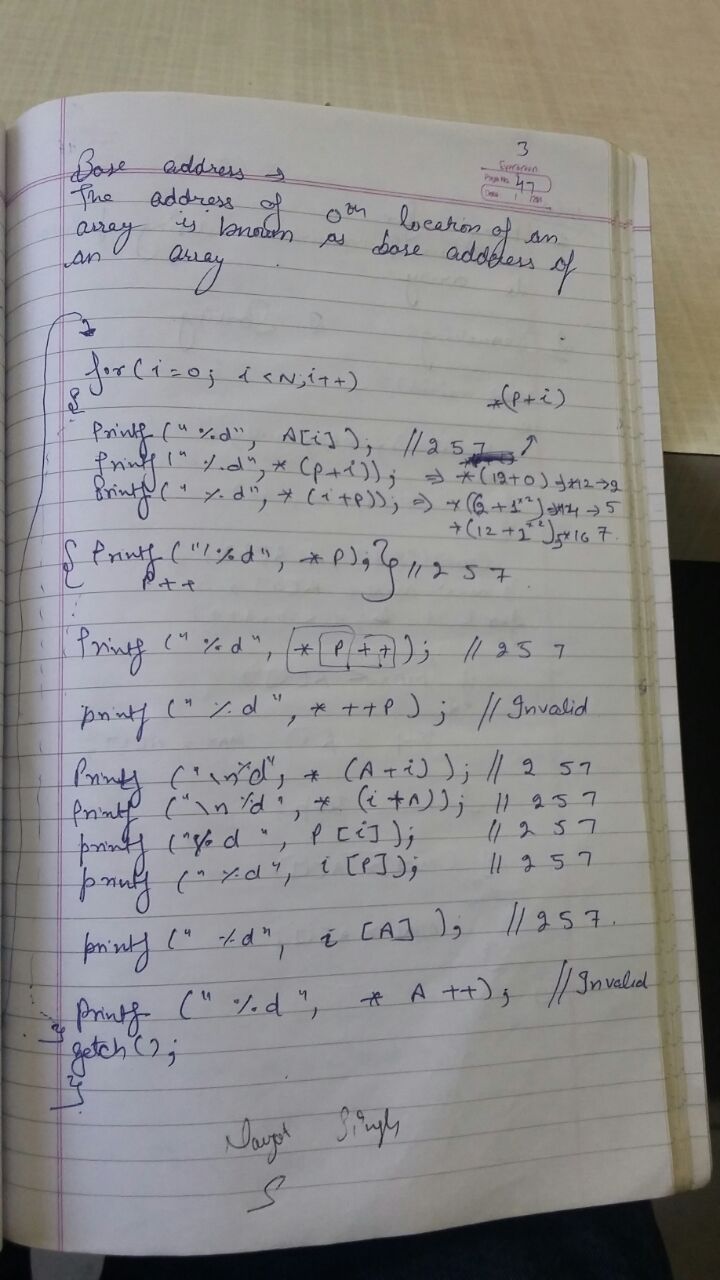 3
Page No. 47
Date
Base address →
The address of 0th location of an
array is known as base address of
an array.
for(i=0; i<N; i++)
{
*(P+i)
Printf (" %d", A[i]); // 2 5 7
Printf (" %d", *(P+i)); ⇒ *(12+0)→*12→2
Printf (" %d", *(i+P)); ⇒ *(12+1*2)→*14→5
*(12+2*2)→*16 7.
{ Printf (" %d", *P); } // 2 5 7
P++
Printf (" %d", *P++); // 2 5 7
printf (" %d", *++P); // Invalid
Printf ("\n%d", *(A+i)); // 2 5 7
Printf ("\n%d", *(i+A)); // 2 5 7
printf ("%d ", P[i]); // 2 5 7
printf (" %d", i[P]); // 2 5 7
printf (" %d", i[A]); // 2 5 7.
printf (" %d ", *A++); // Invalid
}
getch();
}
Singh
S